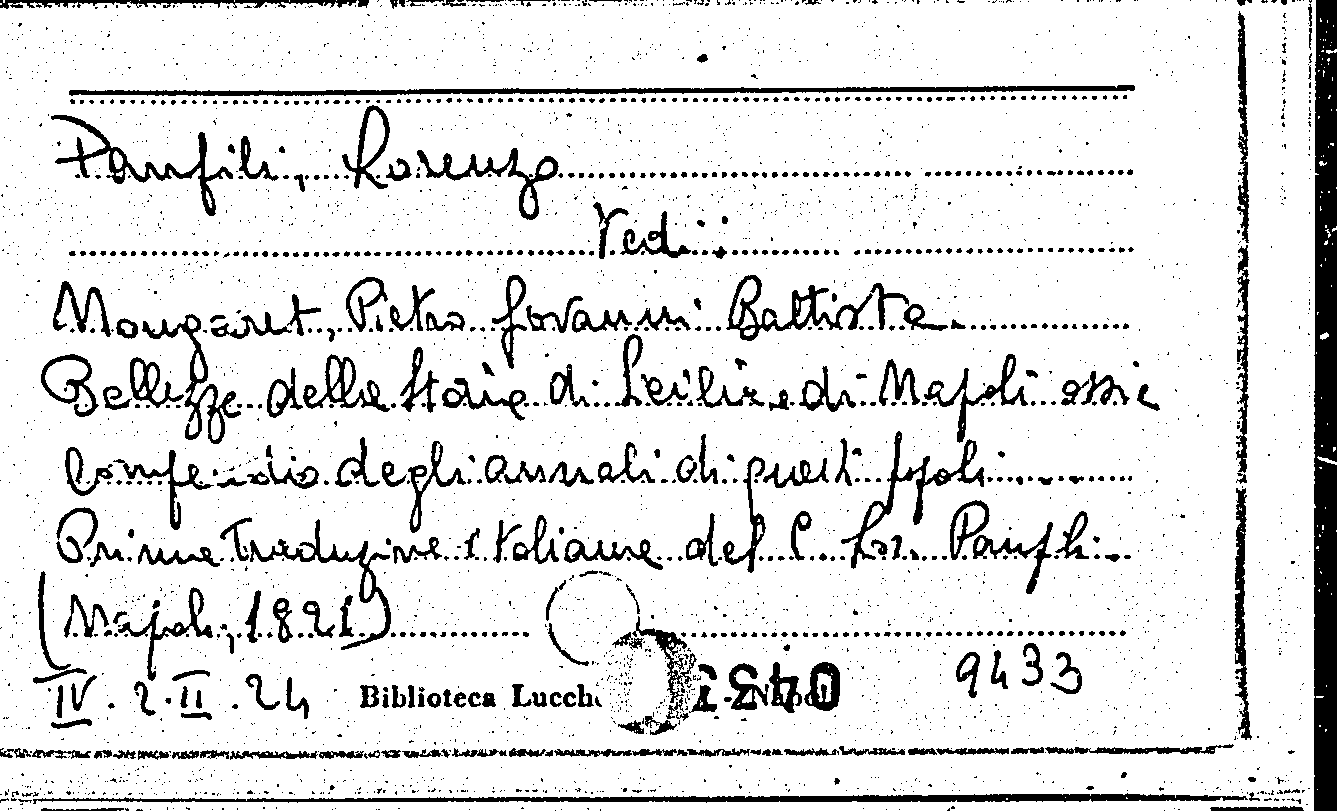 Panfili, Lorenzo
Vedi:
Mougaret, Pietro Giovanni Battista.
Bellezze della Storia di Sicilia e di Napoli ossia
Compendio degli annali di questi popoli
Prima Traduzione italiana del C. Lor. Panfili.
(Napoli, 1821)
IV. 2. II. 24 Biblioteca Lucch Napoli 9433